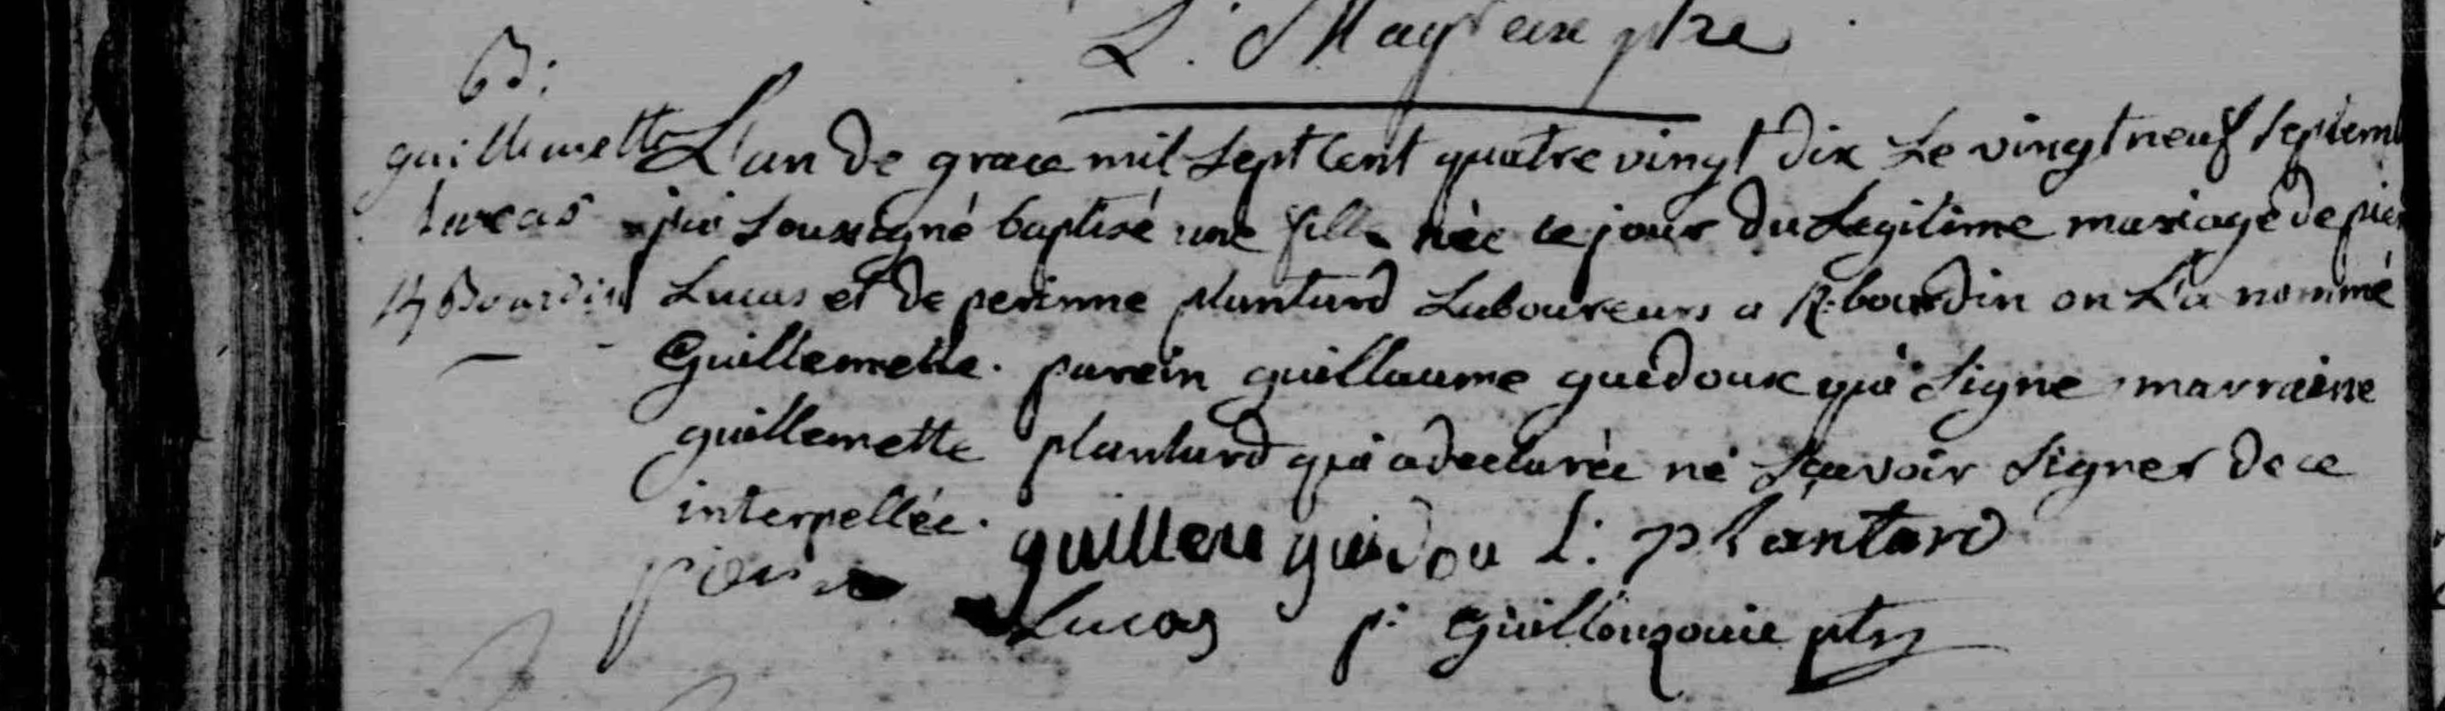 L. Mayeux ptre
B:
guillemette
Lucas
K/Bourdin
L'an de grace mil sept cent quatre vingt dix Le vingt neuf septemb
j'ai soussigné baptisé une fille née ce jour du Legitime mariage de pier
Lucas et de perinne plantard Laboureurs a K/bourdin on L'a nommé
Guillemette. parein guillaume guedoux qui signe marraine
guillemette plantard qui a declarée ne sçavoir signer de ce
interpellée. guillem guidou L: plantard
Lucas p: Guillouzouic ptre